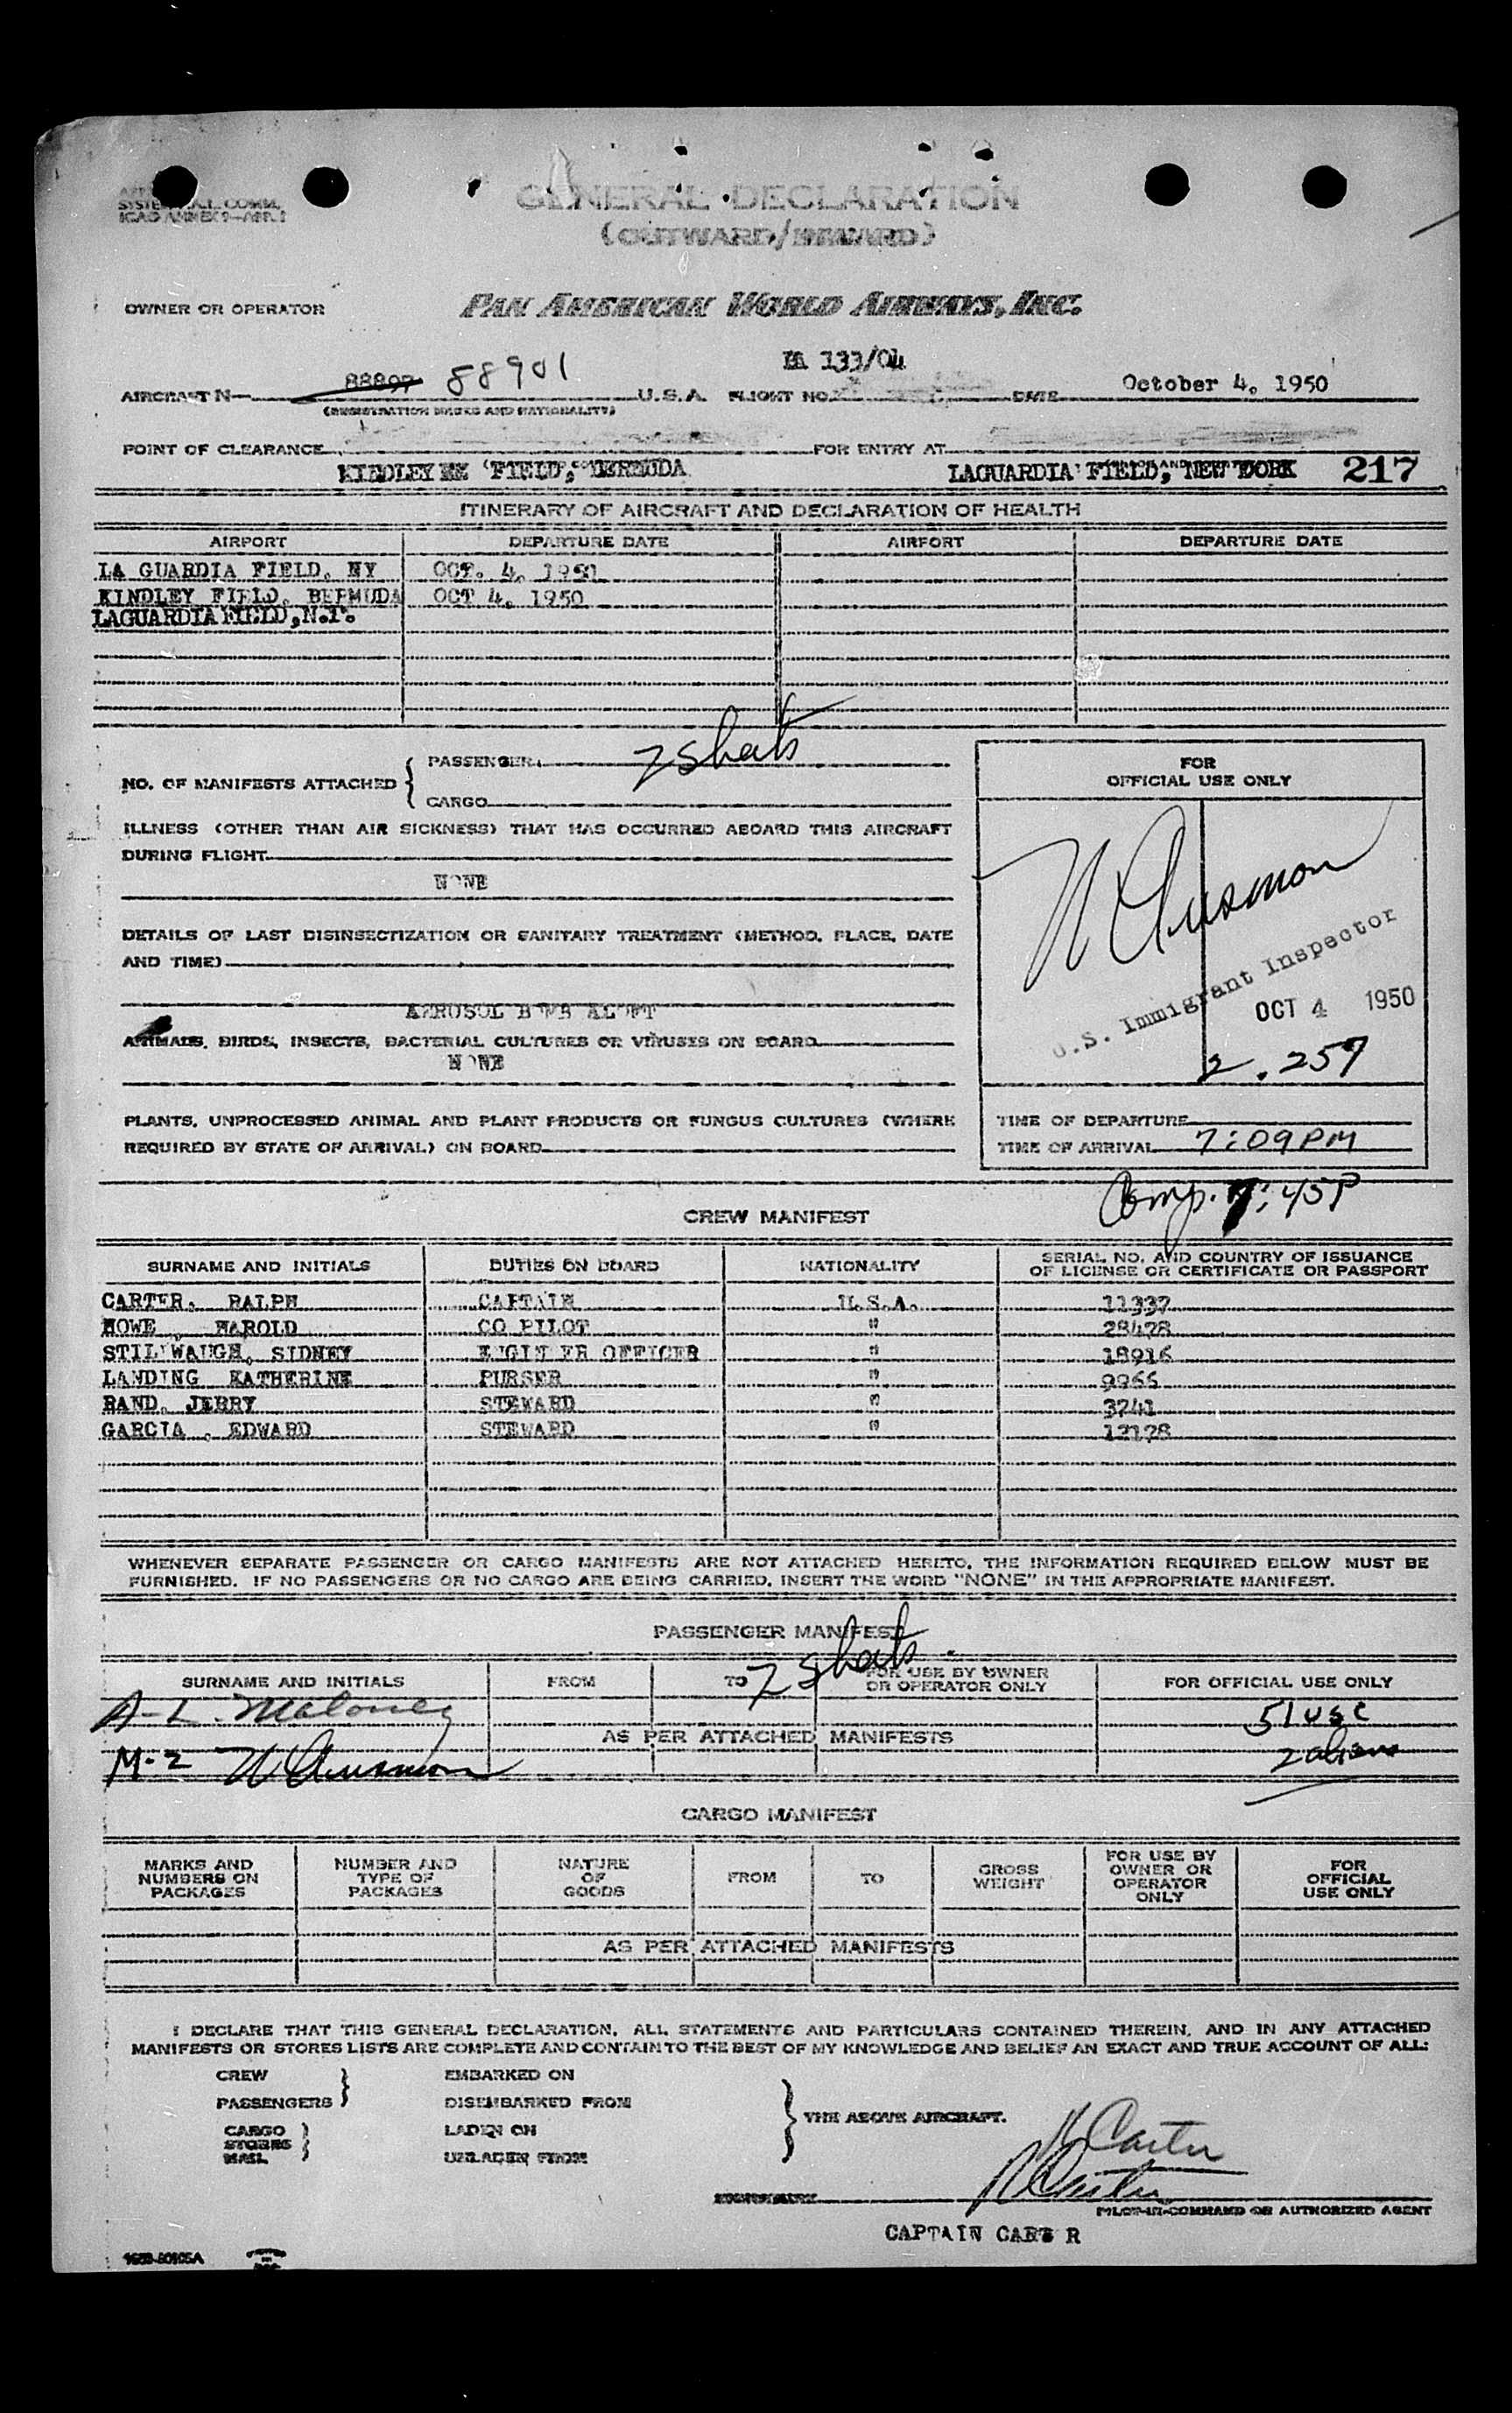 SYSTEM A.L. COMM.
ICAO ANNEX 9—APP. 1
GENERAL DECLARATION
(OUTWARD/INWARD)
OWNER OR OPERATOR PAN AMERICAN WORLD AIRWAYS, INC.
133/04
AIRCRAFT N— 88897 88901 U.S.A. FLIGHT NO. DATE October 4, 1950
(REGISTRATION MARKS AND NATIONALITY)
POINT OF CLEARANCE FOR ENTRY AT
KINDLEY FIELD, BERMUDA LAGUARDIA FIELD, NEW YORK 217
ITINERARY OF AIRCRAFT AND DECLARATION OF HEALTH
AIRPORT DEPARTURE DATE AIRPORT DEPARTURE DATE
LA GUARDIA FIELD, NY OCT. 4, 1950
KINDLEY FIELD, BERMUDA OCT 4, 1950
LAGUARDIA FIELD, N.Y.
NO. OF MANIFESTS ATTACHED { PASSENGER 2 sheets
CARGO
FOR
OFFICIAL USE ONLY
ILLNESS (OTHER THAN AIR SICKNESS) THAT HAS OCCURRED ABOARD THIS AIRCRAFT
DURING FLIGHT
NONE
DETAILS OF LAST DISINSECTIZATION OR SANITARY TREATMENT (METHOD, PLACE, DATE
AND TIME)
AEROSOL BOMB ALOFT
U.S. Immigrant Inspector
OCT 4 1950
ANIMALS, BIRDS, INSECTS, BACTERIAL CULTURES OR VIRUSES ON BOARD
NONE
2.257
PLANTS, UNPROCESSED ANIMAL AND PLANT PRODUCTS OR FUNGUS CULTURES (WHERE
REQUIRED BY STATE OF ARRIVAL) ON BOARD
TIME OF DEPARTURE
TIME OF ARRIVAL 7:09 PM
Comp. 7:45P
CREW MANIFEST
SURNAME AND INITIALS DUTIES ON BOARD NATIONALITY SERIAL NO. AND COUNTRY OF ISSUANCE
OF LICENSE OR CERTIFICATE OR PASSPORT
CARTER, RALPH CAPTAIN U.S.A. 11337
HOWE, HAROLD CO PILOT " 28478
STILLWAUGH, SIDNEY ENGINEER OFFICER " 18916
LANDING KATHERINE PURSER " 9966
RAND, JERRY STEWARD " 3741
GARCIA, EDWARD STEWARD " 12128
WHENEVER SEPARATE PASSENGER OR CARGO MANIFESTS ARE NOT ATTACHED HERETO, THE INFORMATION REQUIRED BELOW MUST BE
FURNISHED. IF NO PASSENGERS OR NO CARGO ARE BEING CARRIED, INSERT THE WORD "NONE" IN THE APPROPRIATE MANIFEST.
PASSENGER MANIFEST
2 sheets
SURNAME AND INITIALS FROM TO FOR USE BY OWNER
OR OPERATOR ONLY FOR OFFICIAL USE ONLY
A-L. Maloney 51 usc
AS PER ATTACHED MANIFESTS
M-2 2 aliens
CARGO MANIFEST
MARKS AND
NUMBERS ON
PACKAGES
NUMBER AND
TYPE OF
PACKAGES
NATURE
OF
GOODS
FROM
TO
GROSS
WEIGHT
FOR USE BY
OWNER OR
OPERATOR
ONLY
FOR
OFFICIAL
USE ONLY
AS PER ATTACHED MANIFESTS
I DECLARE THAT THIS GENERAL DECLARATION, ALL STATEMENTS AND PARTICULARS CONTAINED THEREIN, AND IN ANY ATTACHED
MANIFESTS OR STORES LISTS ARE COMPLETE AND CONTAIN TO THE BEST OF MY KNOWLEDGE AND BELIEF AN EXACT AND TRUE ACCOUNT OF ALL:
CREW EMBARKED ON
PASSENGERS DISEMBARKED FROM
THE ABOVE AIRCRAFT.
CARGO LADEN ON
STORES
MAIL UNLADEN FROM
R Carter
R Carter
SIGNATURE
PILOT-IN-COMMAND OR AUTHORIZED AGENT
CAPTAIN CARTER